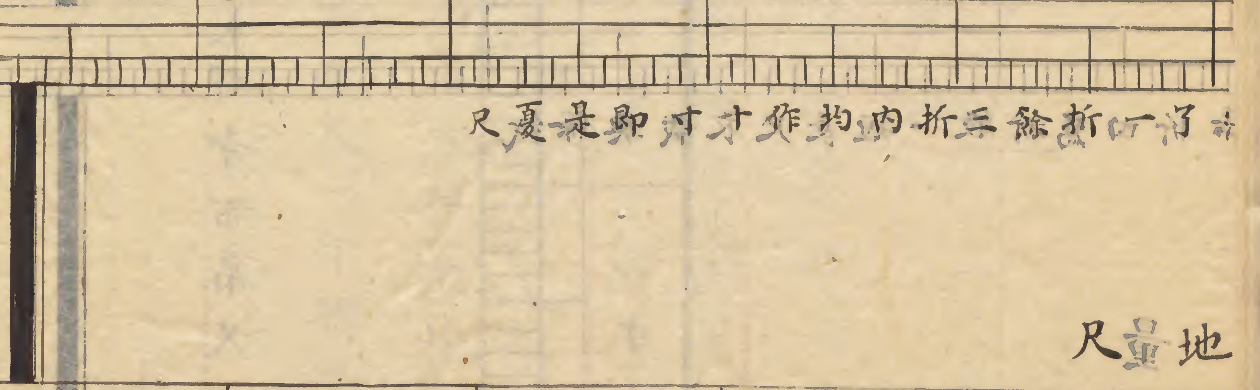 了一折餘三折內均作十寸即是夏尺
地尺